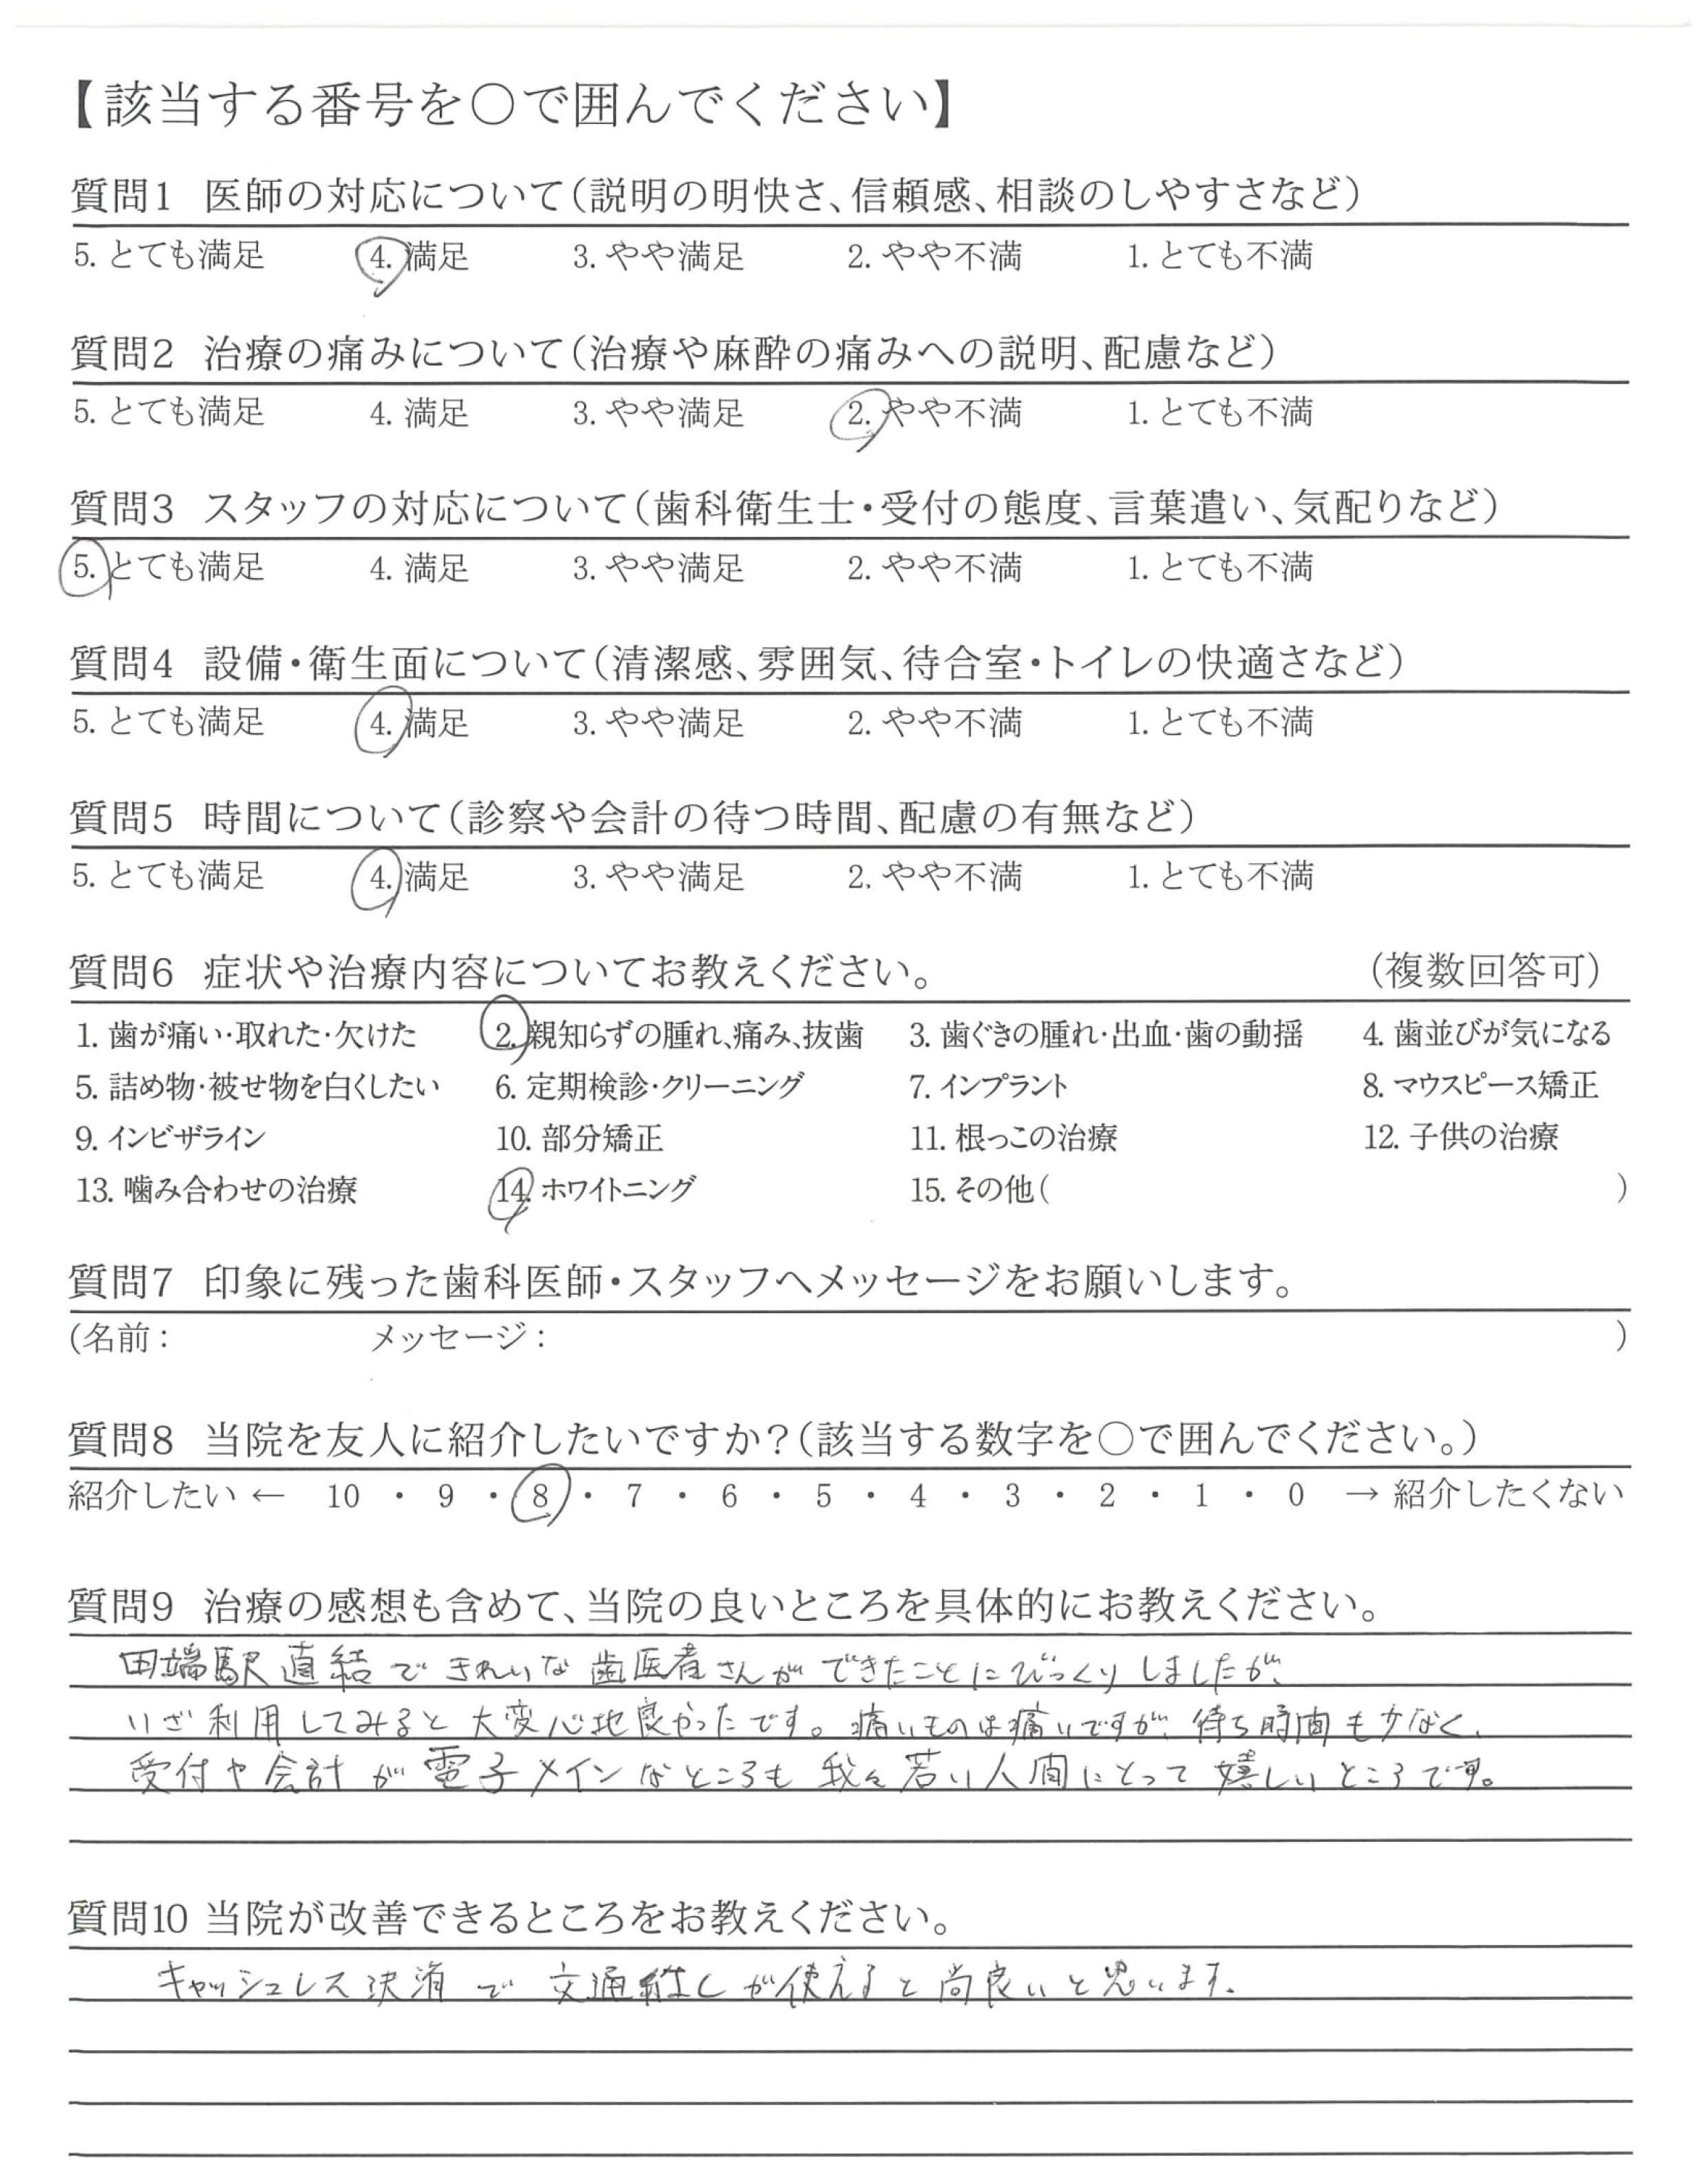 【該当する番号を○で囲んでください】
質問1 医師の対応について(説明の明快さ、信頼感、相談のしやすさなど)
5. とても満足 4. 満足 3. やや満足 2. やや不満 1. とても不満
質問2 治療の痛みについて(治療や麻酔の痛みへの説明、配慮など)
5. とても満足 4. 満足 3. やや満足 2. やや不満 1. とても不満
質問3 スタッフの対応について(歯科衛生士・受付の態度、言葉遣い、気配りなど)
5. とても満足 4. 満足 3. やや満足 2. やや不満 1. とても不満
質問4 設備・衛生面について(清潔感、雰囲気、待合室・トイレの快適さなど)
5. とても満足 4. 満足 3. やや満足 2. やや不満 1. とても不満
質問5 時間について(診察や会計の待つ時間、配慮の有無など)
5. とても満足 4. 満足 3. やや満足 2. やや不満 1. とても不満
質問6 症状や治療内容についてお教えください。 (複数回答可)
1. 歯が痛い・取れた・欠けた 2. 親知らずの腫れ、痛み、抜歯 3. 歯ぐきの腫れ・出血・歯の動揺 4. 歯並びが気になる
5. 詰め物・被せ物を白くしたい 6. 定期検診・クリーニング 7. インプラント 8. マウスピース矯正
9. インビザライン 10. 部分矯正 11. 根っこの治療 12. 子供の治療
13. 噛み合わせの治療 14. ホワイトニング 15. その他( )
質問7 印象に残った歯科医師・スタッフへメッセージをお願いします。
(名前: メッセージ: )
質問8 当院を友人に紹介したいですか?(該当する数字を○で囲んでください。)
紹介したい ← 10 ・ 9 ・ 8 ・ 7 ・ 6 ・ 5 ・ 4 ・ 3 ・ 2 ・ 1 ・ 0 → 紹介したくない
質問9 治療の感想も含めて、当院の良いところを具体的にお教えください。
田端駅直結できれいな歯医者さんができたことにびっくりしましたが、
いざ利用してみると大変心地良かったです。痛いものは痛いですが、待ち時間も少なく、
受付や会計が電子メインなところも我々若い人間にとって嬉しいところです。
質問10 当院が改善できるところをお教えください。
キャッシュレス決済で交通系ICが使えると尚良いと思います。